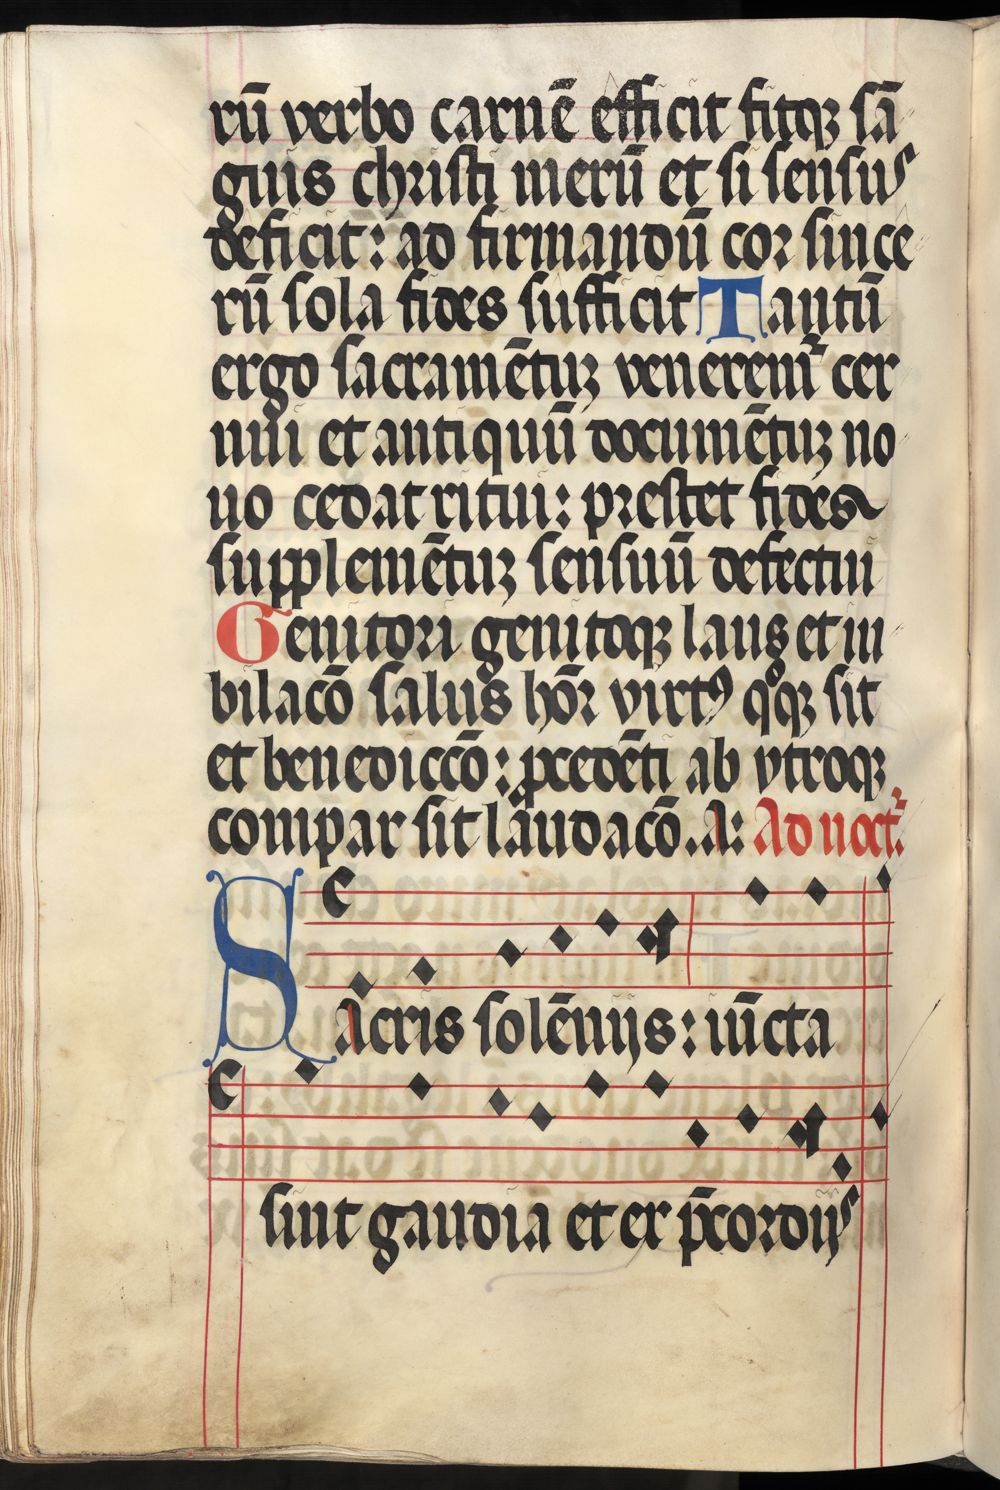 rū verbo carnē efficit fitqꝫ sā
guis christi merū et si sensus
deficit: ad firmandū cor since
rū sola fides sufficit Tantū
ergo sacramētuꝫ venerem᷑ cer
nui et antiquū documētuꝫ no
uo cedat ritui: prestet fides
supplemētuꝫ sensuū defectui
Genitori genitoqꝫ laus et iu
bilacō salus hōr virtꝰ qͦqꝫ sit
et benediccō: ꝓcedēti ab vtroqꝫ
compar sit laudacō. A: Ad noct᷑.
Sacris solēnijs: iūcta
sint gaudia et ex p̄cordijs